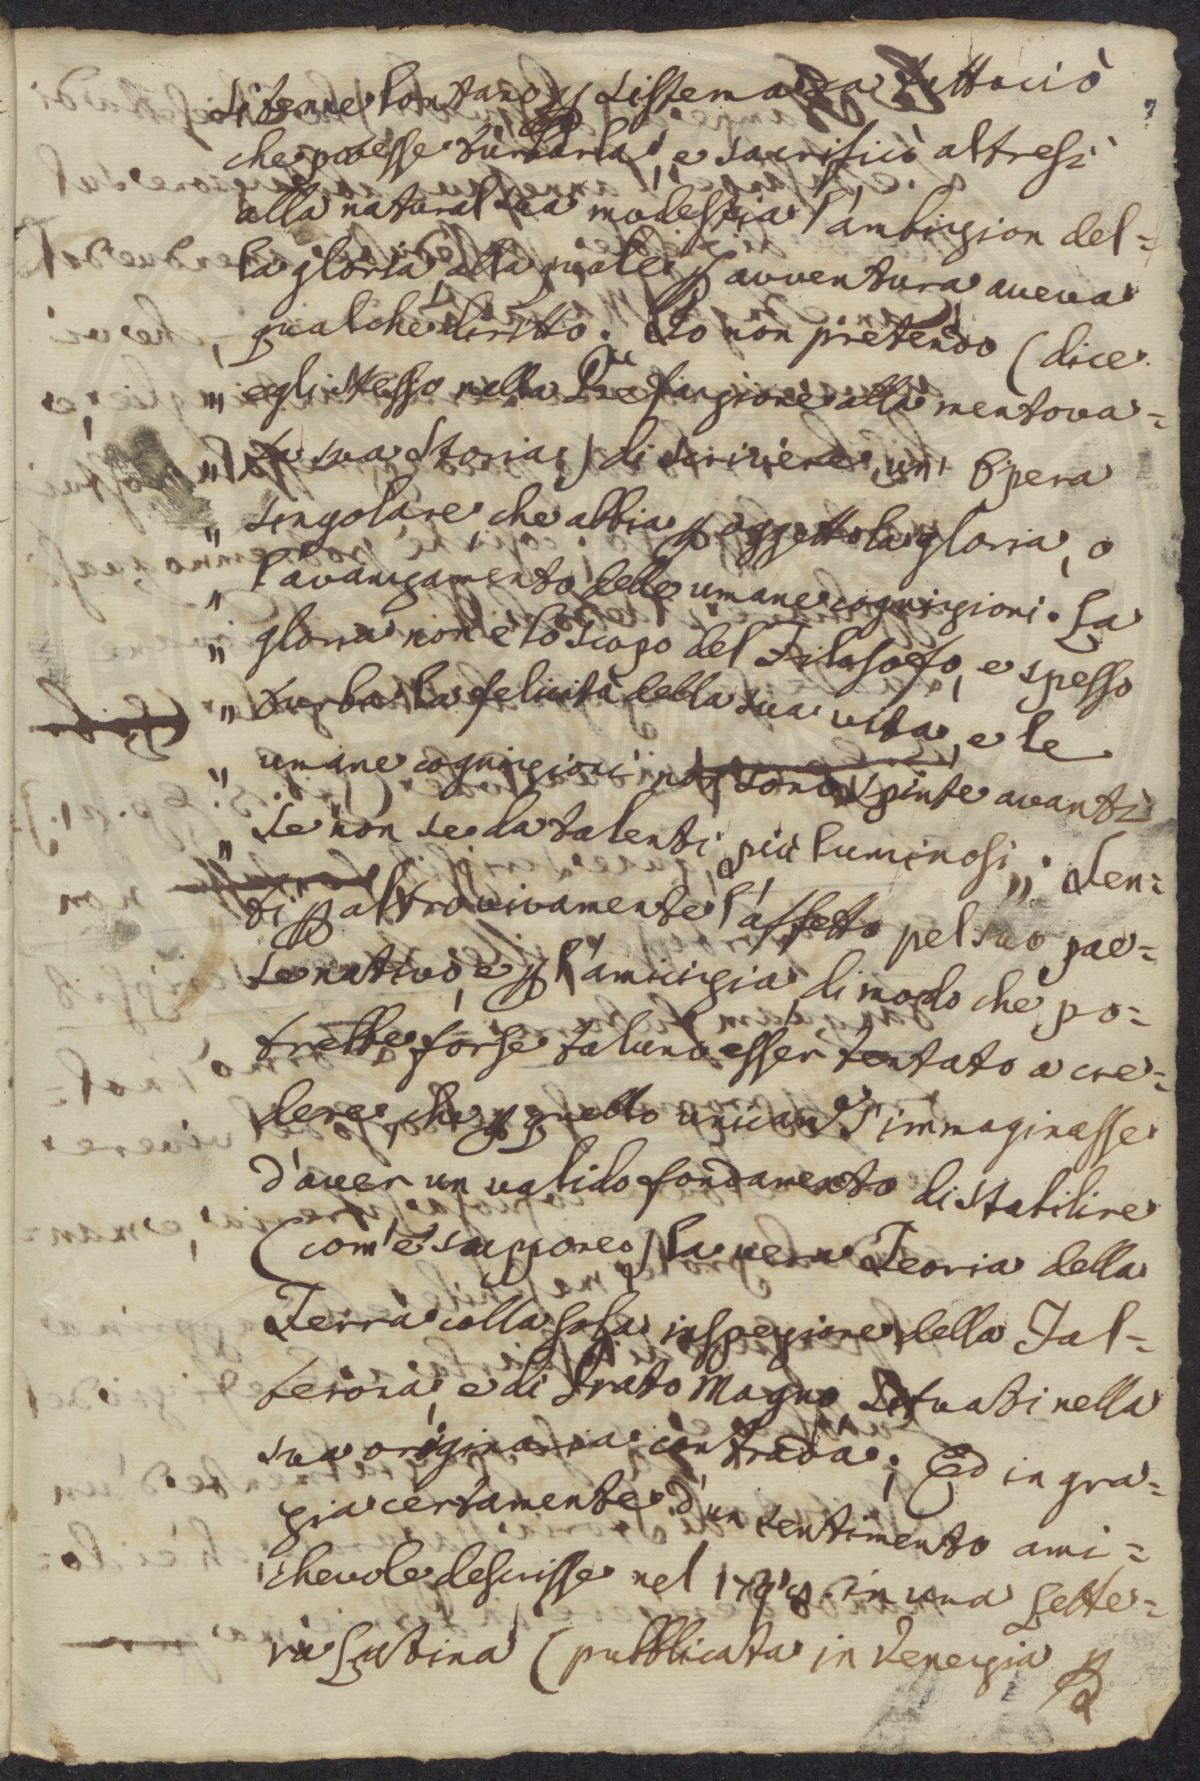 si tenne lontano p sistema da tuttociò
che potesse turbarla, e sacrificò altresì
alla natural sua modestia l'ambizion del=
la gloria, alla quale p avventura aveva
qualche diritto. Io non pretendo (dice
„ egli stesso nella Prefazione alla mentova=
„ ta sua Storia) di scrivere un' Opera
„ singolare, che abbia p oggetto la gloria, o
„ l'avanzamento delle umane cognizioni. La
„ gloria non è lo scopo del Filosofo, e spesso
„ turba la felicità della sua vita, e le
„ umane cognizioni non sono spinte avanti
„ se non se da talenti più luminosi „. Sen=
tì p altro vivamente l'affetto pel suo pae=
se nativo, e p l'amicizia, di modo che po=
trebbe forse taluno esser tentato a cre=
dere, che p quello unicam.e s'immaginasse
d'aver un valido fondamento di stabilire
(com'e' suppone) la vera Teoria della
Terra colla sola inspezione della Fal=
terona, e di Prato Magno situati nella
sua originaria contrada. Ed in gra=
zia certamente d'un sentimento ami=
chevole descrisse nel in una Lette=
ra Latina (pubblicata in Venezia p